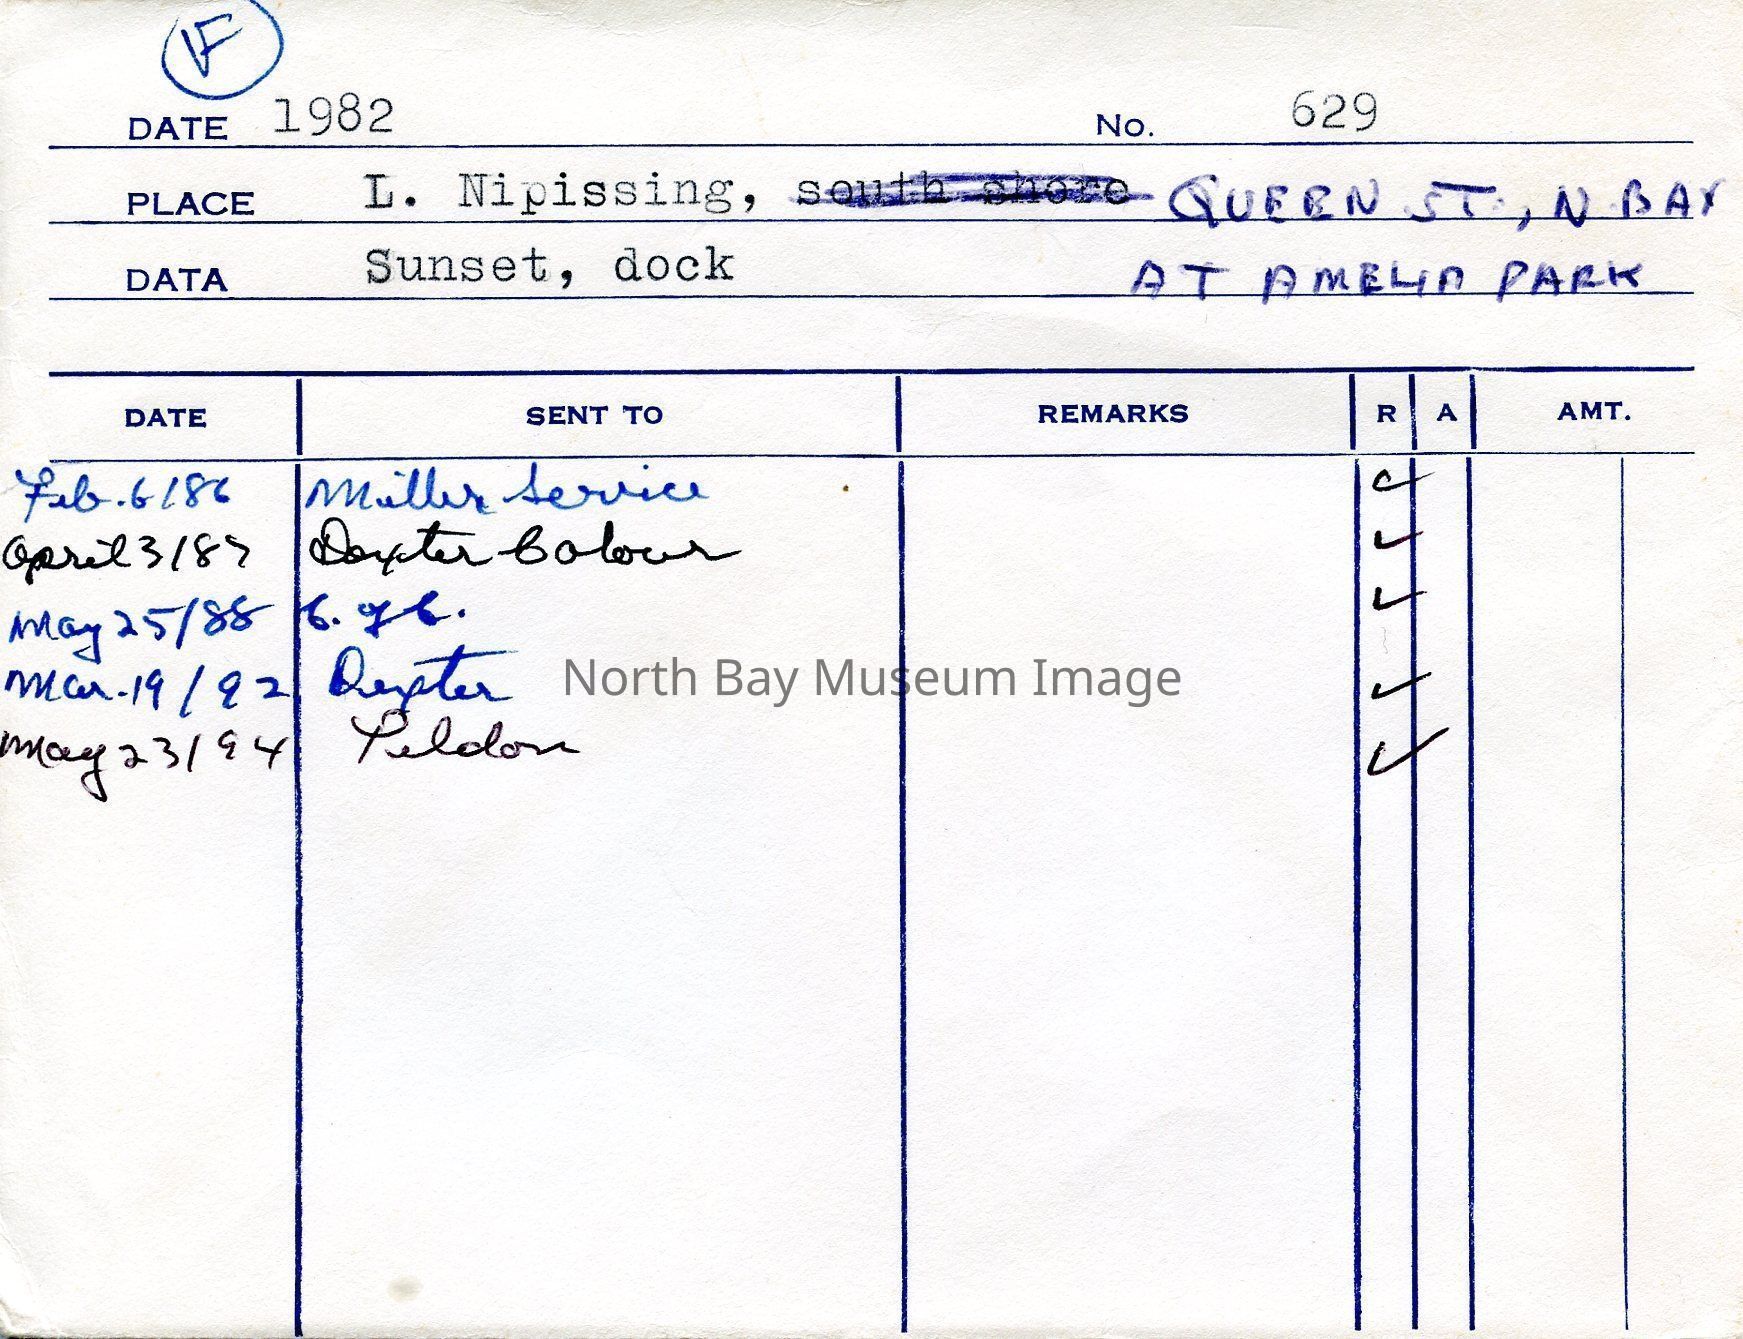 VF
DATE 1982 No. 629
PLACE L. Nipissing, south shore QUEEN ST., N BAY
DATA Sunset, dock AT AMELIA PARK
DATE SENT TO REMARKS R A AMT.
Feb. 6/86 Miller Service
April 3/87 Dexter Colour
May 25/88 C. of C.
Mar. 19/92 Dexter
North Bay Museum Image
May 23/94 Yeldon